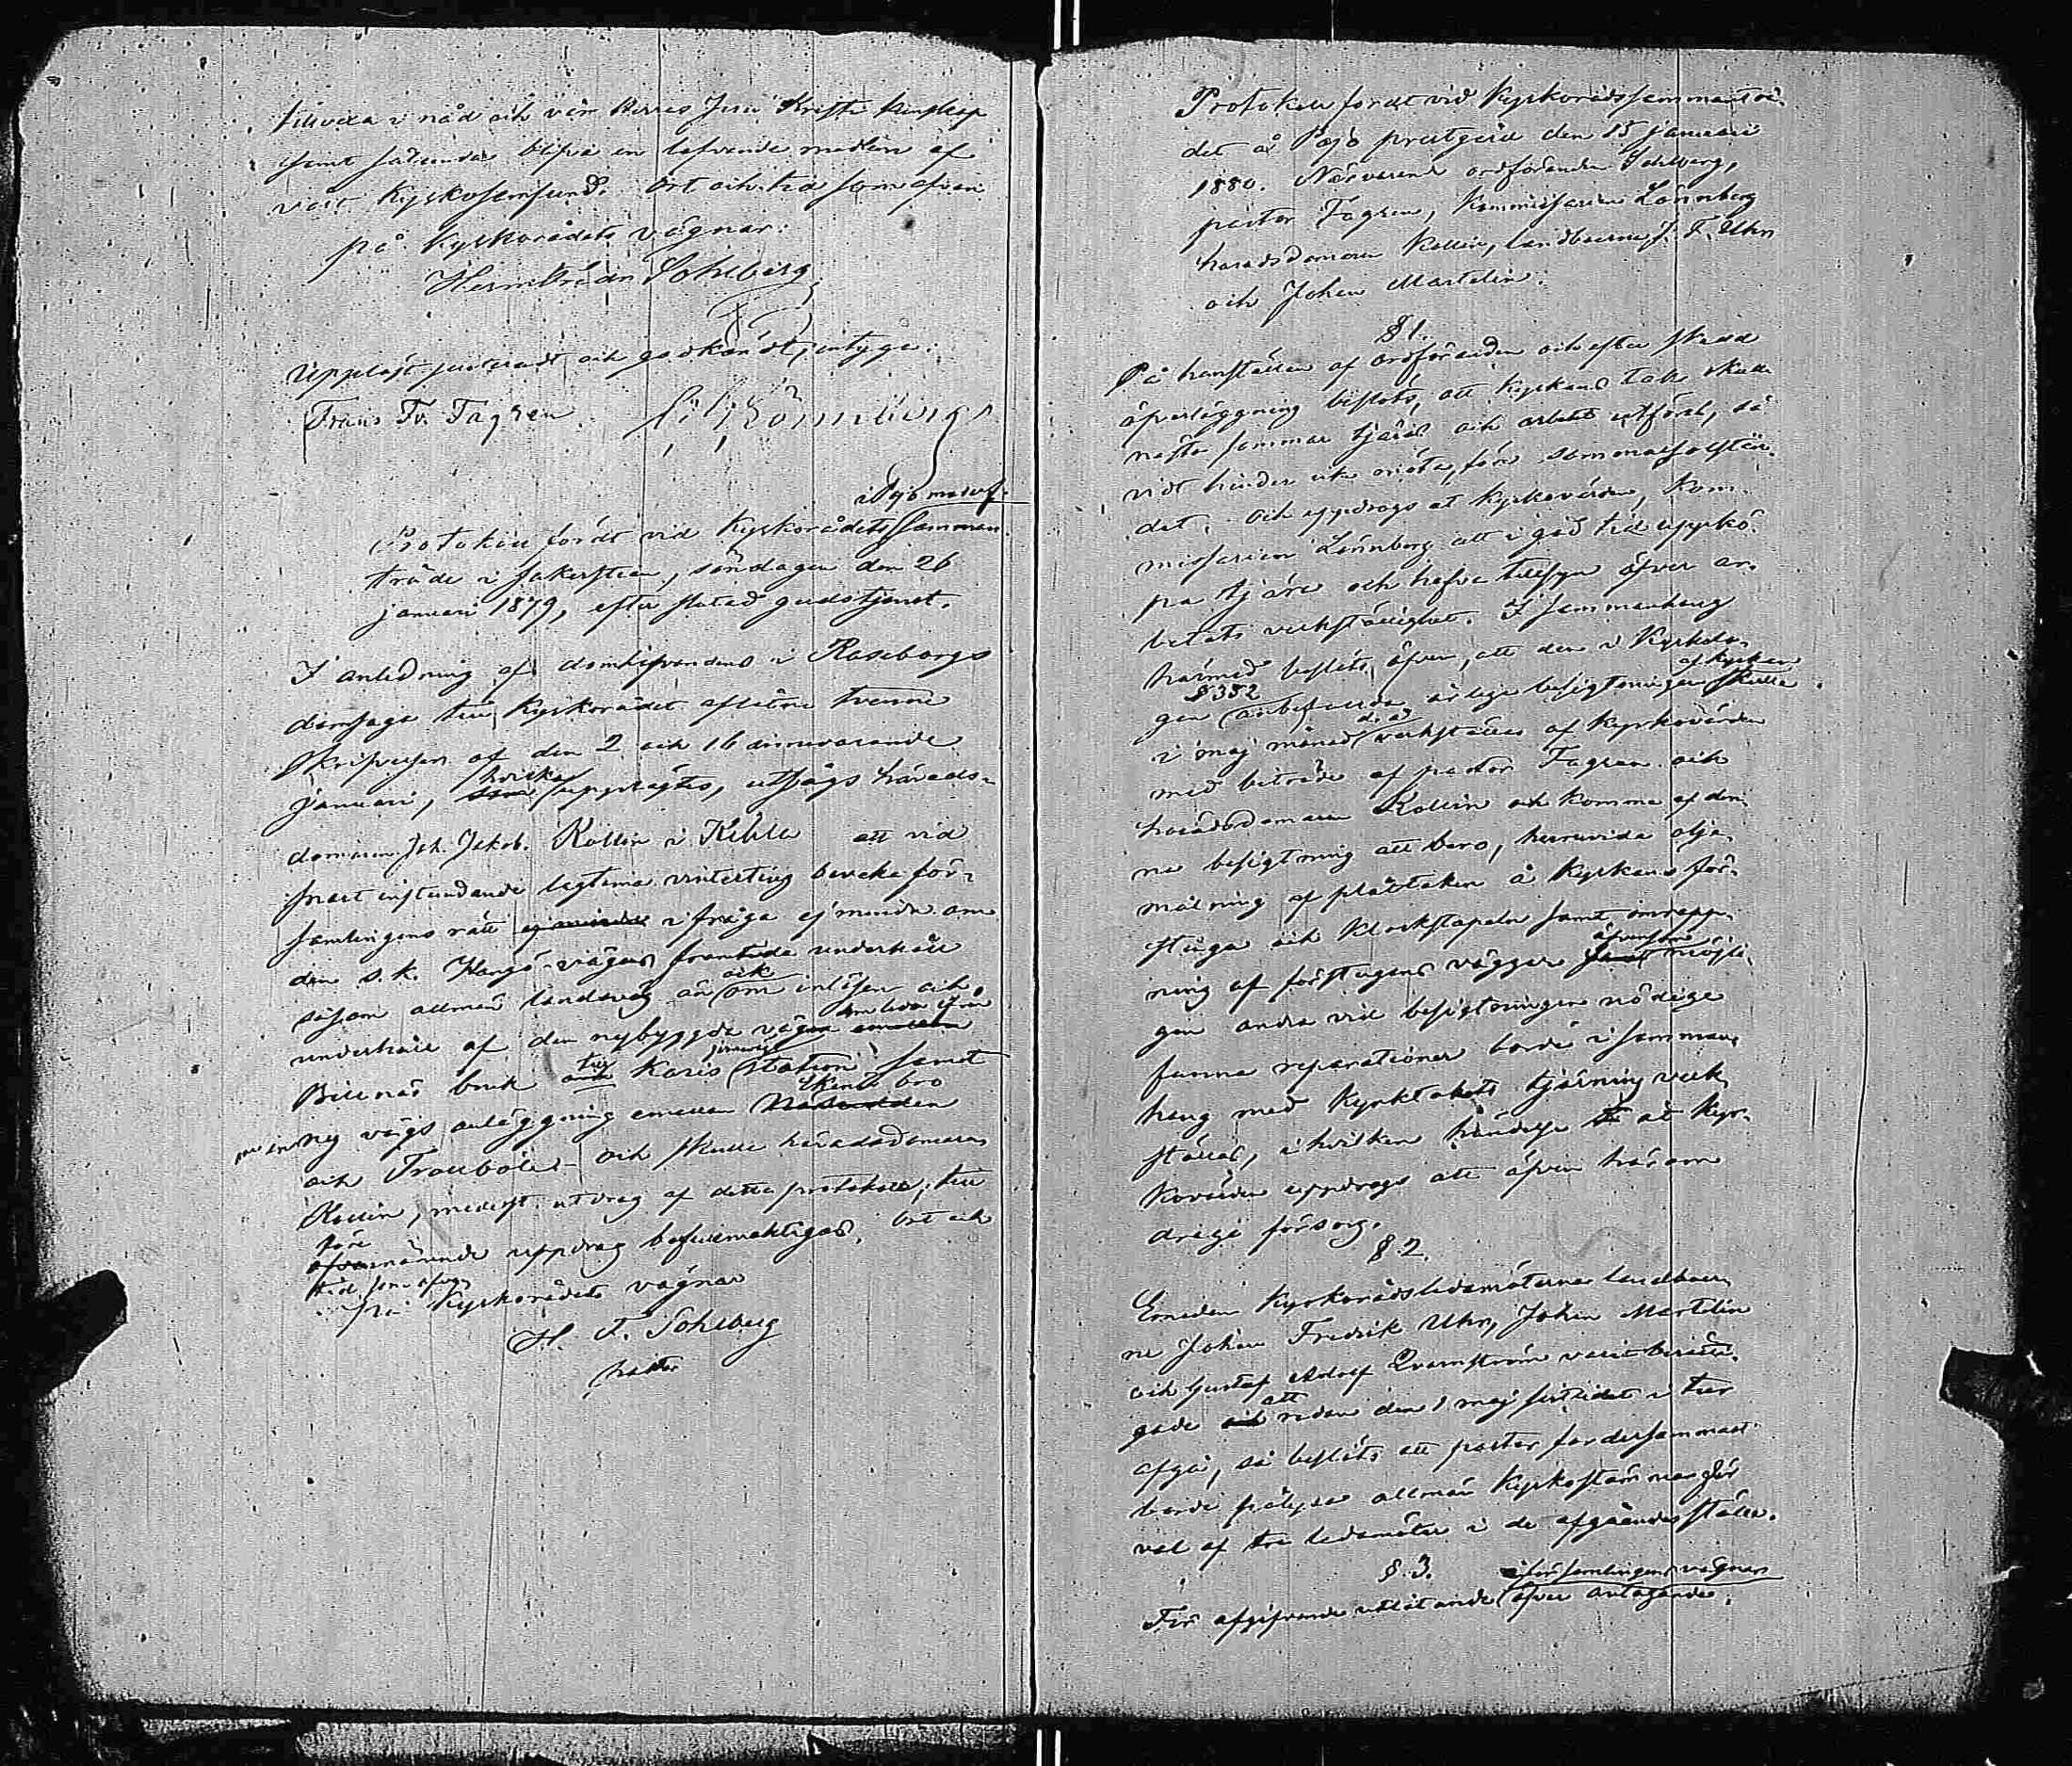 tillvexa i nåd och vår Herres Jesu Kristi kunskap
samt sålunda blifva en lefvande medlem af
vårt kyrkosamfund. Ort och tid som ofvan
på Kyrkorådets vägnar:
Herm Fredr Sohlberg
Uppläst justeradt och godkändt, intyga:
Frans Fr. Fagren Lönnberg
i Pojo moderf.
Protokoll fördt vid Kyrkorådets samman
träde i sakerstian, söndagen den 26
januari 1879, efter slutad gudstjenst.
I anledning af domhafvandens i Raseborgs
domsaga till Kyrkorådet aflåtne tvenne
skrifvelser af den 2 och 16 dennevarande
januari, hvilka upplästes, utsågs härads-
domaren Joh. Jakob. Kollin i Kihla att vid
snart instundande lagtima vinterting bevaka för-
samlingens rätt ej mindre i fråga ej mindre om
den s.k. Hangö-vägens framtida underhåll
såsom allmän landsväg än ock om inlösen och
underhåll af den nybyggda vägen som leder ifrån
Billnäs bruk till Karis jernvägs station samt
om en ny vägs anläggning emellan Ekenäs bro
och Trollböle och skulle häradsdomaren
Kollin, medelst utdrag af detta protokoll, till
före
ofvannämnde uppdrag befullmäktigas. Ort och
tid som ofvan
på Kyrkorådets vägnar
H. F. Sohlberg
Protokoll fördt vid Kyrkorådssammanträ-
det å Pojo prestgård den 15 januari
1880. Närvarande ordföranden Sohlberg,
pastor Fagren, Kommissarien Lönnberg
häradsdomaren Kollin, landboerne J. F. Uhr
och Johan Martelin.
§ 1.
På hemställan af ordföranden och efter skedd
öfverläggning beslöts, att kyrkans tak skulle
nästa sommar tjäras och arbetet utföras, så
vidt hinder icke möta, före sommarsolstån-
det; och uppdrogs åt kyrkovärden, Kom-
missarien Lönnberg att i god tid uppkö-
pa tjära och hafva tillsyn öfver ar-
betets verkställighet. I sammanhang
härmed beslöts äfven, att den i Kyrkola-
gen § 352 anbefallda årliga besigtningen af kyrkan skulle
i maj månad d. å. verkställas af kyrkovärden
med biträde af pastor Fagren och
häradsdomaren Kollin och komme af den-
na besigtning att bero, huruvida olje-
målning af plåttaken å kyrkans för-
stuga och klockstapeln samt omrapp-
ning af förstugans väggar äfvensom möjli-
gen andra vid besigtningen nödiga
funna reparationer borde i samman-
hang med kyrktakets tjärning verk-
ställas, i hvilken händelse åt kyr-
kovärden uppdrogs att äfven härom
draga försorg.
§ 2.
Emedan Kyrkorådsledamöterne landboer-
ne Johan Fredrik Uhr, Johan Martelin
och Gustaf Adolf Qvarnström varit berätti-
gade att redan den 1 maj sistlidet i tur
afgå, så beslöts att pastor fördersammast
borde pålysa allmän kyrkostämma för
val af tre ledamöter i de afgåendes ställe.
§ 3.
För afgifvande utlåtande i församlingens vägnar öfver antagande